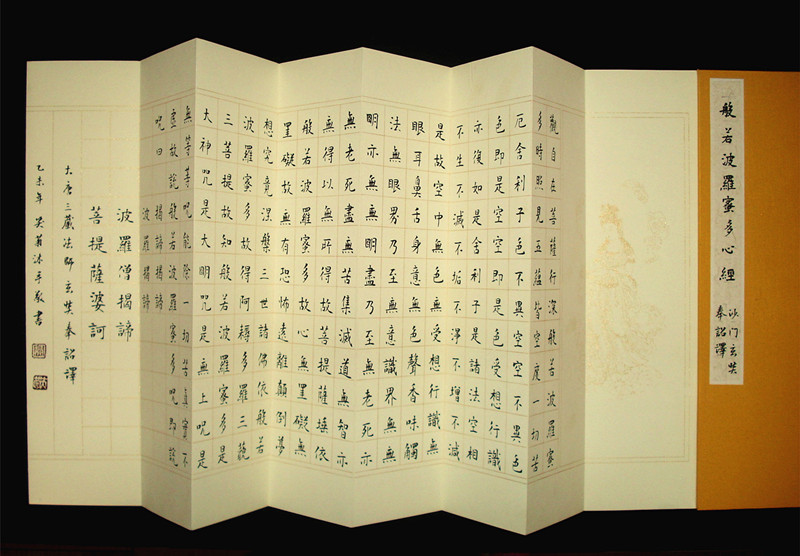 般若波羅蜜多心經
沙门玄奘
奉詔譯
觀自在菩薩行深般若波羅蜜
多時照見五蘊皆空度一切苦
厄舍利子色不異空空不異色
色即是空空即是色受想行識
亦復如是舍利子是諸法空相
不生不滅不垢不淨不增不減
是故空中無色無受想行識無
眼耳鼻舌身意無色聲香味觸
法無眼界乃至無意識界無無
明亦無無明盡乃至無老死亦
無老死盡無苦集滅道無智亦
無得以無所得故菩提薩埵依
般若波羅蜜多故心無罣礙無
罣礙故無有恐怖遠離顛倒夢
想究竟涅槃三世諸佛依般若
波羅蜜多故得阿耨多羅三藐
三菩提故知般若波羅蜜多是
大神咒是大明咒是無上咒是
無等等咒能除一切苦真實不
虛故說般若波羅蜜多咒即說
咒曰 揭諦揭諦
波羅揭諦
波羅僧揭諦
菩提薩婆訶
大唐三藏法師玄奘奉詔譯
乙未年 沐手敬書